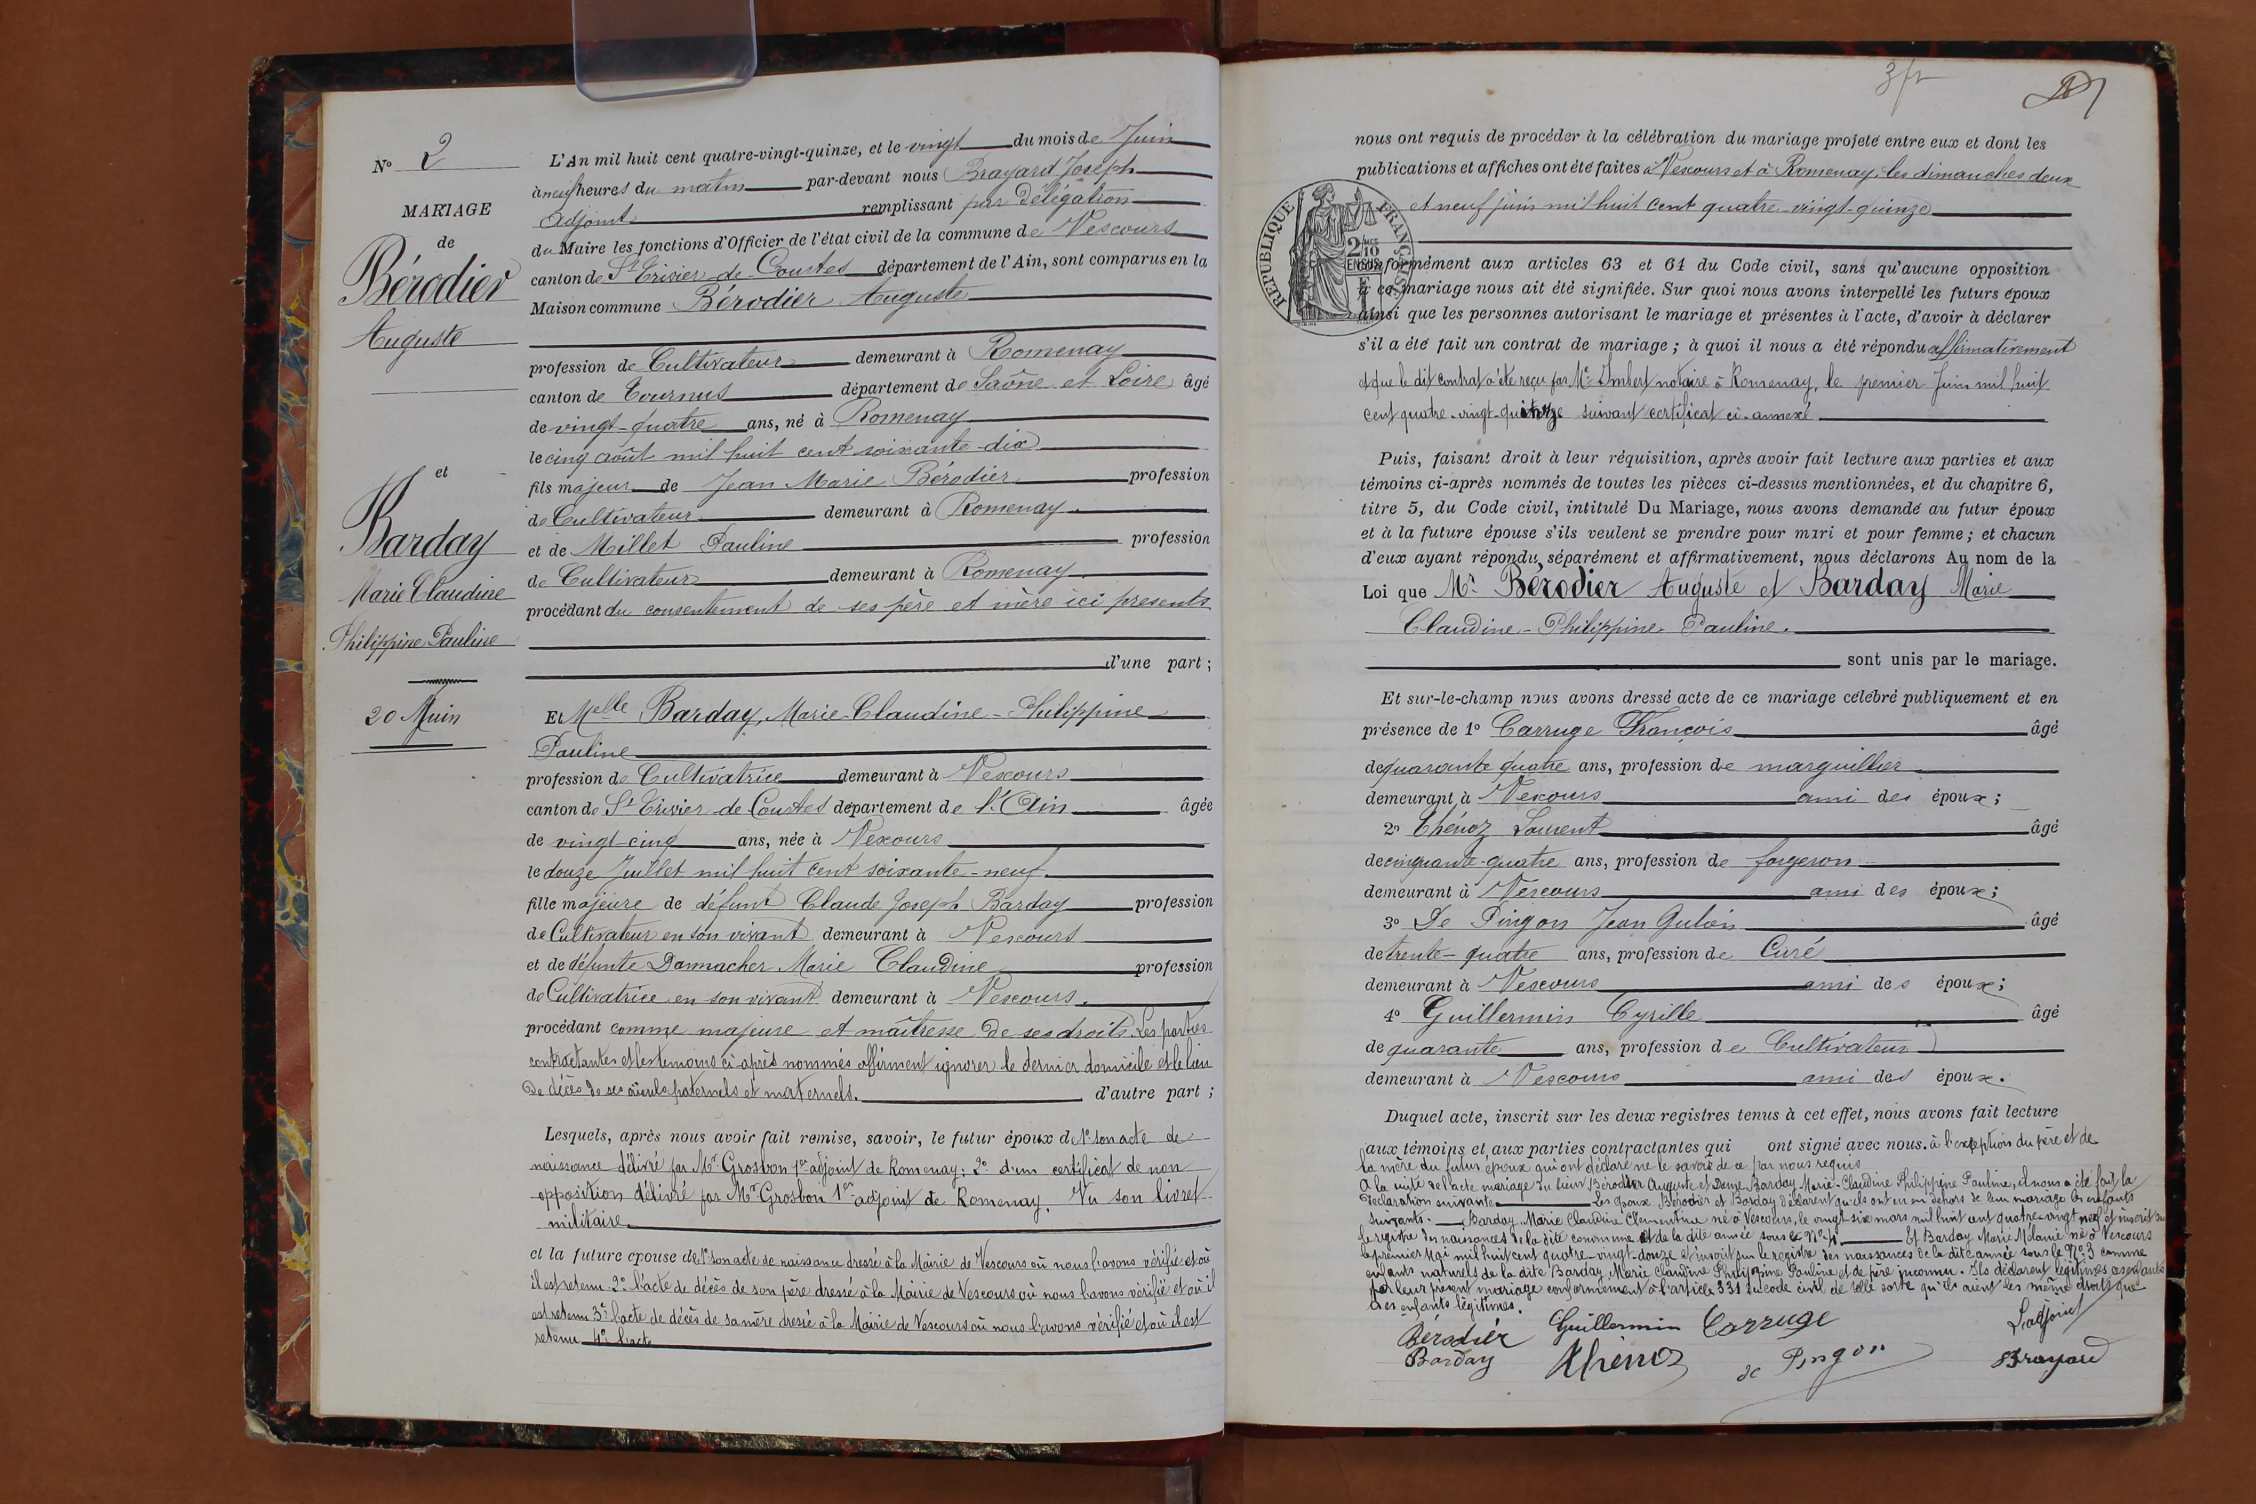 N° 2
MARIAGE
de
Bérodier
Auguste
et
Barday
Marie Claudine
Philippine Pauline
20 Juin
L'An mil huit cent quatre-vingt-quinze, et le vingt du mois de Juin
à neuf heures du matin par-devant nous Brayard Joseph
adjoint remplissant par délégation
du Maire les fonctions d'Officier de l'état civil de la commune de Vescours
canton de St Trivier de Courtes département de l'Ain, sont comparus en la
Maison commune Bérodier Auguste
profession de Cultivateur demeurant à Romenay
canton de Tournus département de Saône et Loire âgé
de vingt-quatre ans, né à Romenay
le cinq août mil huit cent soixante-dix
fils majeur de Jean Marie Bérodier profession
de Cultivateur demeurant à Romenay.
et de Millet Pauline profession
de Cultivateur demeurant à Romenay.
procédant du consentement de ses père et mère ici présents
d'une part;
Et Melle Barday, Marie-Claudine-Philippine
Pauline
profession de Cultivatrice demeurant à Vescours
canton de St Trivier de Courtes département de l'Ain âgée
de vingt-cinq ans, née à Vescours
le douze Juillet mil huit cent soixante-neuf.
fille majeure de défunt Claude Joseph Barday profession
de Cultivateur en son vivant demeurant à Vescours
et de défunte Dannacher Marie Claudine profession
de Cultivatrice en son vivant demeurant à Vescours.
procédant comme majeure et maîtresse de ses droits. Les parties
contractantes et les témoins ci-après nommés affirment ignorer le dernier domicile et le lieu
de décès de ses aïeuls paternels et maternels. d'autre part;
Lesquels, après nous avoir fait remise, savoir, le futur époux d 1° son acte de
naissance délivré par Mr Grosbon 1er adjoint de Romenay; 2° d'un certificat de non
opposition délivré par Mr Grosbon 1er adjoint de Romenay. Vu son livret
militaire.
et la future épouse de 1° son acte de naissance dressé à la Mairie de Vescours où nous l'avons vérifié et où
il est retenu 2° l'acte de décès de son père dressé à la Mairie de Vescours où nous l'avons vérifié et où il
est retenu 3° l'acte de décès de sa mère dressé à la Mairie de Vescours où nous l'avons vérifié et où il est
retenu 4° l'acte
3 fr
nous ont requis de procéder à la célébration du mariage projeté entre eux et dont les
publications et affiches ont été faites à Vescours et à Romenay, les dimanches deux
et neuf juin mil huit cent quatre-vingt-quinze
RÉPUBLIQUE FRANÇAISE
2/10
EN SUS
conformément aux articles 63 et 64 du Code civil, sans qu'aucune opposition
à ce mariage nous ait été signifiée. Sur quoi nous avons interpellé les futurs époux
ainsi que les personnes autorisant le mariage et présentes à l'acte, d'avoir à déclarer
s'il a été fait un contrat de mariage; à quoi il nous a été répondu affirmativement
et que le dit contrat a été reçu par Me Imbert notaire à Romenay, le premier Juin mil huit
cent quatre-vingt-quinze suivant certificat ci-annexé
Puis, faisant droit à leur réquisition, après avoir fait lecture aux parties et aux
témoins ci-après nommés de toutes les pièces ci-dessus mentionnées, et du chapitre 6,
titre 5, du Code civil, intitulé Du Mariage, nous avons demandé au futur époux
et à la future épouse s'ils veulent se prendre pour mari et pour femme; et chacun
d'eux ayant répondu, séparément et affirmativement, nous déclarons Au nom de la
Loi que Mr Bérodier Auguste et Barday Marie
Claudine-Philippine Pauline.
sont unis par le mariage.
Et sur-le-champ nous avons dressé acte de ce mariage célébré publiquement et en
présence de 1° Carruge François âgé
de quarante quatre ans, profession de marguillier
demeurant à Vescours ami des époux;
2° Thénoz Laurent âgé
de cinquante-quatre ans, profession de forgeron
demeurant à Vescours ami des époux;
3° De Pingon Jean Gulien âgé
de trente-quatre ans, profession de Curé
demeurant à Vescours ami des époux;
4° Guillermin Cyrille âgé
de quarante ans, profession de Cultivateur
demeurant à Vescours ami des époux.
Duquel acte, inscrit sur les deux registres tenus à cet effet, nous avons fait lecture
aux témoins et aux parties contractantes qui ont signé avec nous. à l'exception du père et de
la mère du futur époux qui ont déclaré ne le savoir de ce par nous requis
A la suite de l'acte mariage du sieur Bérodier Auguste et Dame Barday Marie-Claudine Philippine Pauline, il nous a été fait la
déclaration suivante Les époux Bérodier et Barday déclarent qu'ils ont eu en dehors de leur mariage les enfants
suivants. Barday Marie Claudine Clémentine né à Vescours, le vingt six mars mil huit cent quatre-vingt neuf et inscrit sur
le registre des naissances de la dite commune et de la dite année sous le N° 4 Et Barday Marie Mélanie né à Vescours
le premier Mai mil huit cent quatre-vingt-douze et inscrit sur le registre des naissances de la dite année sous le N° 3 comme
enfants naturels de la dite Barday Marie Claudine Philippine Pauline et de père inconnu. Ils déclarent légitimes ces enfants
par leur présent mariage conformément à l'article 331 du code civil de telle sorte qu'ils aient les même droits que
des enfants légitimes.
Bérodier Guillermin Carruge L'adjoint
Barday Thénoz de Pingon Brayard